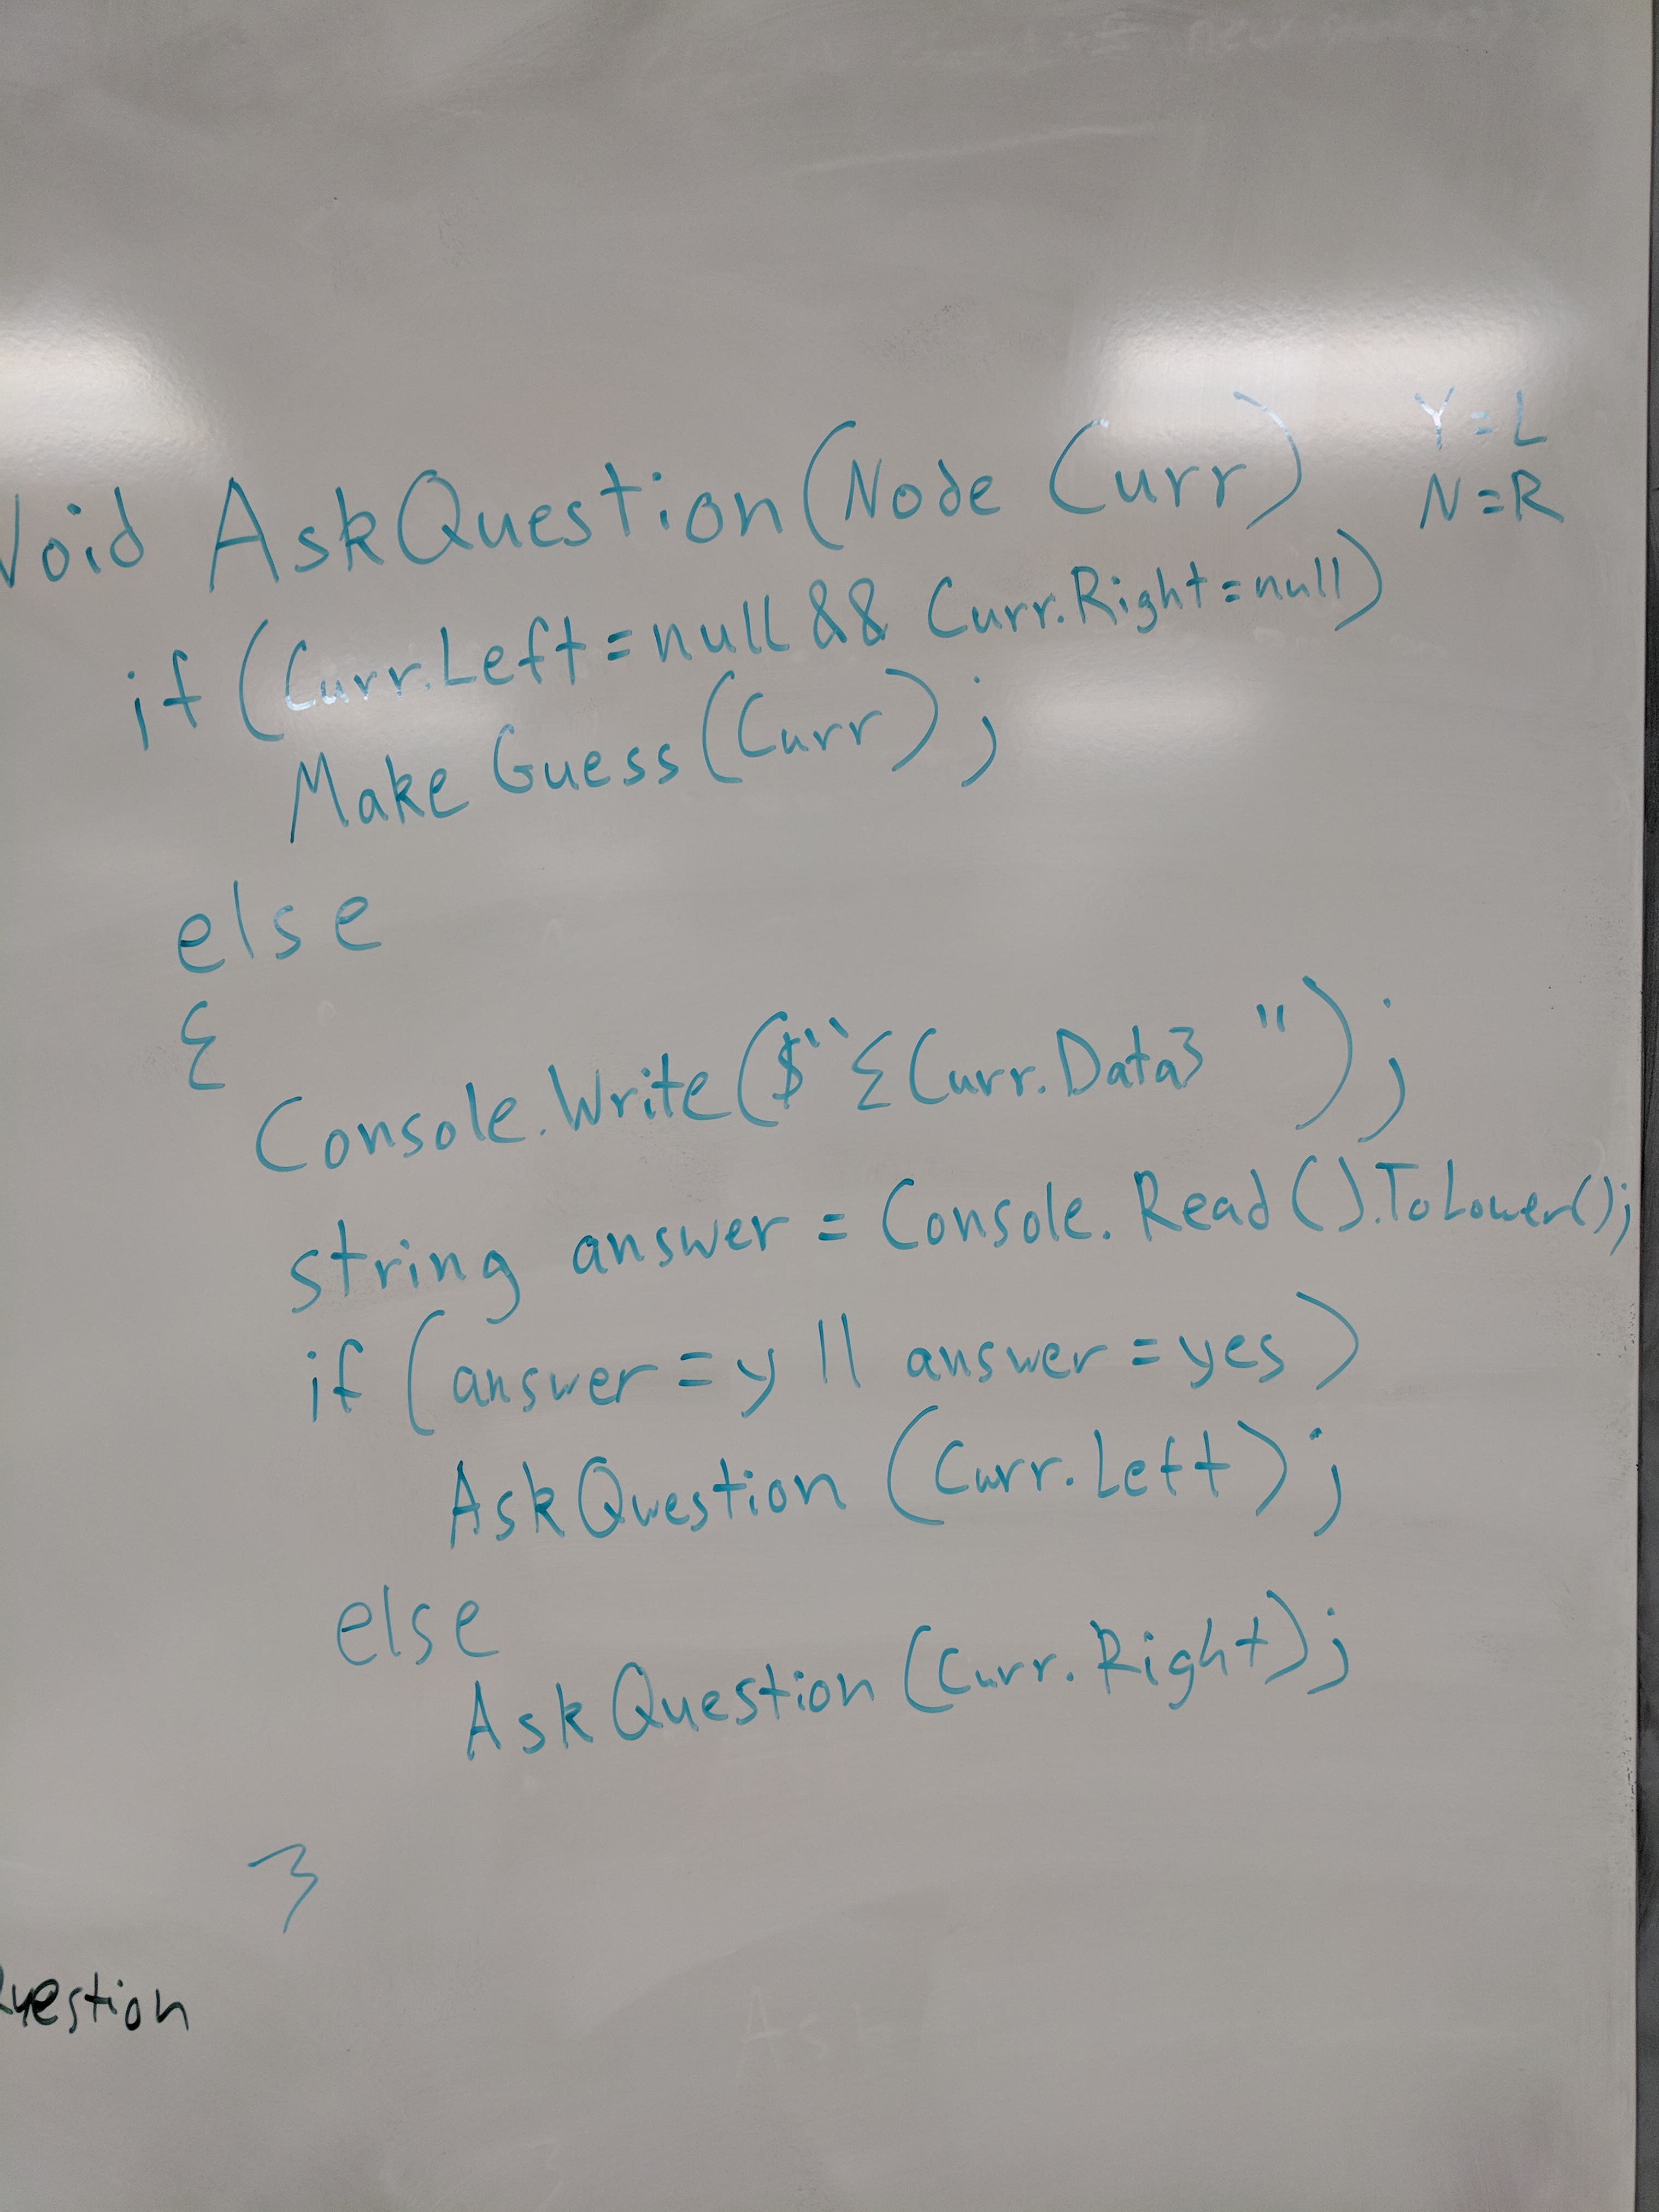 Void AskQuestion(Node Curr)
Y=L
N=R
if (Curr.Left=null && Curr.Right=null)
Make Guess(Curr);
else
{
Console.Write($"{Curr.Data} ");
string answer = Console.Read().ToLower();
if (answer=y || answer=yes)
AskQuestion (Curr.Left);
else
AskQuestion (Curr.Right);
}
Question